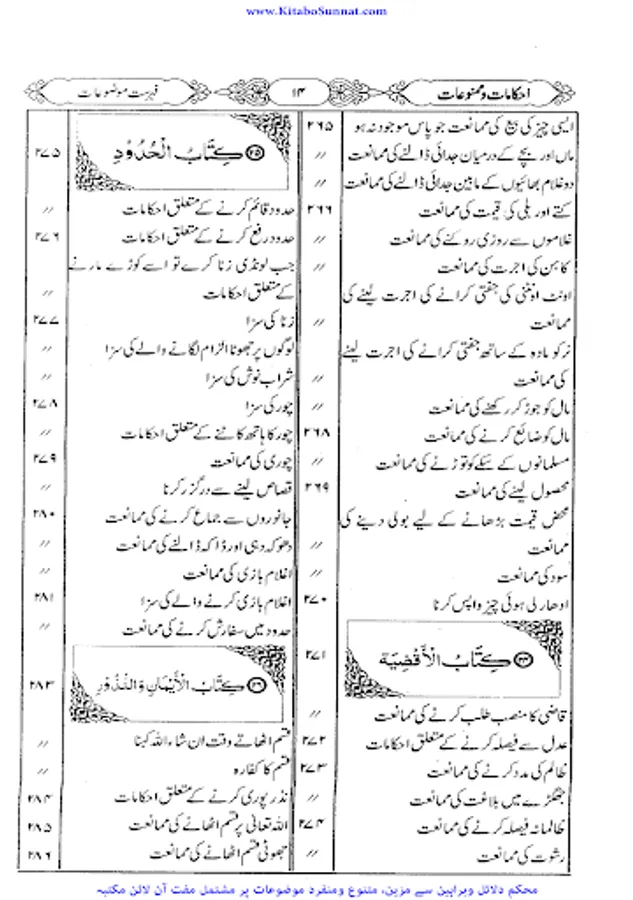 www.KitaboSunnat.com
احکامات و ممنوعات
۱۴
فہرست موضوعات
ایسی چیز کی بیع کی ممانعت جو پاس موجود نہ ہو ۲۶۵
ماں اور بچے کے درمیان جدائی ڈالنے کی ممانعت 〃
دو غلام بھائیوں کے مابین جدائی ڈالنے کی ممانعت 〃
کتے اور بلی کی قیمت کی ممانعت ۲۶۶
غلاموں سے روزی روکنے کی ممانعت 〃
کاہن کی اجرت کی ممانعت 〃
اونٹ اونٹنی کی جفتی کرانے کی اجرت لینے کی
ممانعت 〃
نر کو مادہ کے ساتھ جفتی کرانے کی اجرت لینے
کی ممانعت 〃
مال کو جوڑ کر رکھنے کی ممانعت 〃
مال کو ضائع کرنے کی ممانعت ۲۶۸
مسلمانوں کے سکے کو توڑنے کی ممانعت 〃
محصول لینے کی ممانعت ۲۶۹
محض قیمت بڑھانے کے لیے بولی دینے کی
ممانعت 〃
سود کی ممانعت 〃
ادھار لی ہوئی چیز واپس کرنا ۲۷۰
كِتَابُ الْأَقْضِيَة ۲۷۱
قاضی کا منصب طلب کرنے کی ممانعت 〃
عدل سے فیصلہ کرنے کے متعلق احکامات ۲۷۲
ظالم کی مدد کرنے کی ممانعت ۲۷۳
جھگڑے میں بلاغت کی ممانعت 〃
ظالمانہ فیصلہ کرنے کی ممانعت ۲۷۴
رشوت کی ممانعت 〃
۲۵ كِتَابُ الْحُدُوْدِ ۲۷۵
حدود قائم کرنے کے متعلق احکامات 〃
حدود رفع کرنے کے متعلق احکامات ۲۷۶
جب لونڈی زنا کرے تو اسے کوڑے مارنے
کے متعلق احکامات 〃
زنا کی سزا ۲۷۷
لوگوں پر جھوٹا الزام لگانے والے کی سزا 〃
شراب نوش کی سزا 〃
چور کی سزا ۲۷۸
چور کا ہاتھ کاٹنے کے متعلق احکامات 〃
چوری کی ممانعت ۲۷۹
قصاص لینے سے درگزر کرنا 〃
جانوروں سے جماع کرنے کی ممانعت ۲۸۰
دھوکہ دہی اور ڈاکہ ڈالنے کی ممانعت 〃
اغلام بازی کی ممانعت 〃
اغلام بازی کرنے والے کی سزا ۲۸۱
حدود میں سفارش کرنے کی ممانعت 〃
۲۶ كِتَابُ الْأَيْمَانِ وَالنُّذُوْرِ ۲۸۳
قسم اٹھاتے وقت ان شاء اللہ کہنا 〃
قسم کا کفارہ 〃
نذر پوری کرنے کے متعلق احکامات ۲۸۴
اللہ تعالیٰ پر قسم اٹھانے کی ممانعت ۲۸۵
جھوٹی قسم اٹھانے کی ممانعت ۲۸۶
محکم دلائل وبراہین سے مزین، متنوع ومنفرد موضوعات پر مشتمل مفت آن لائن مکتبہ